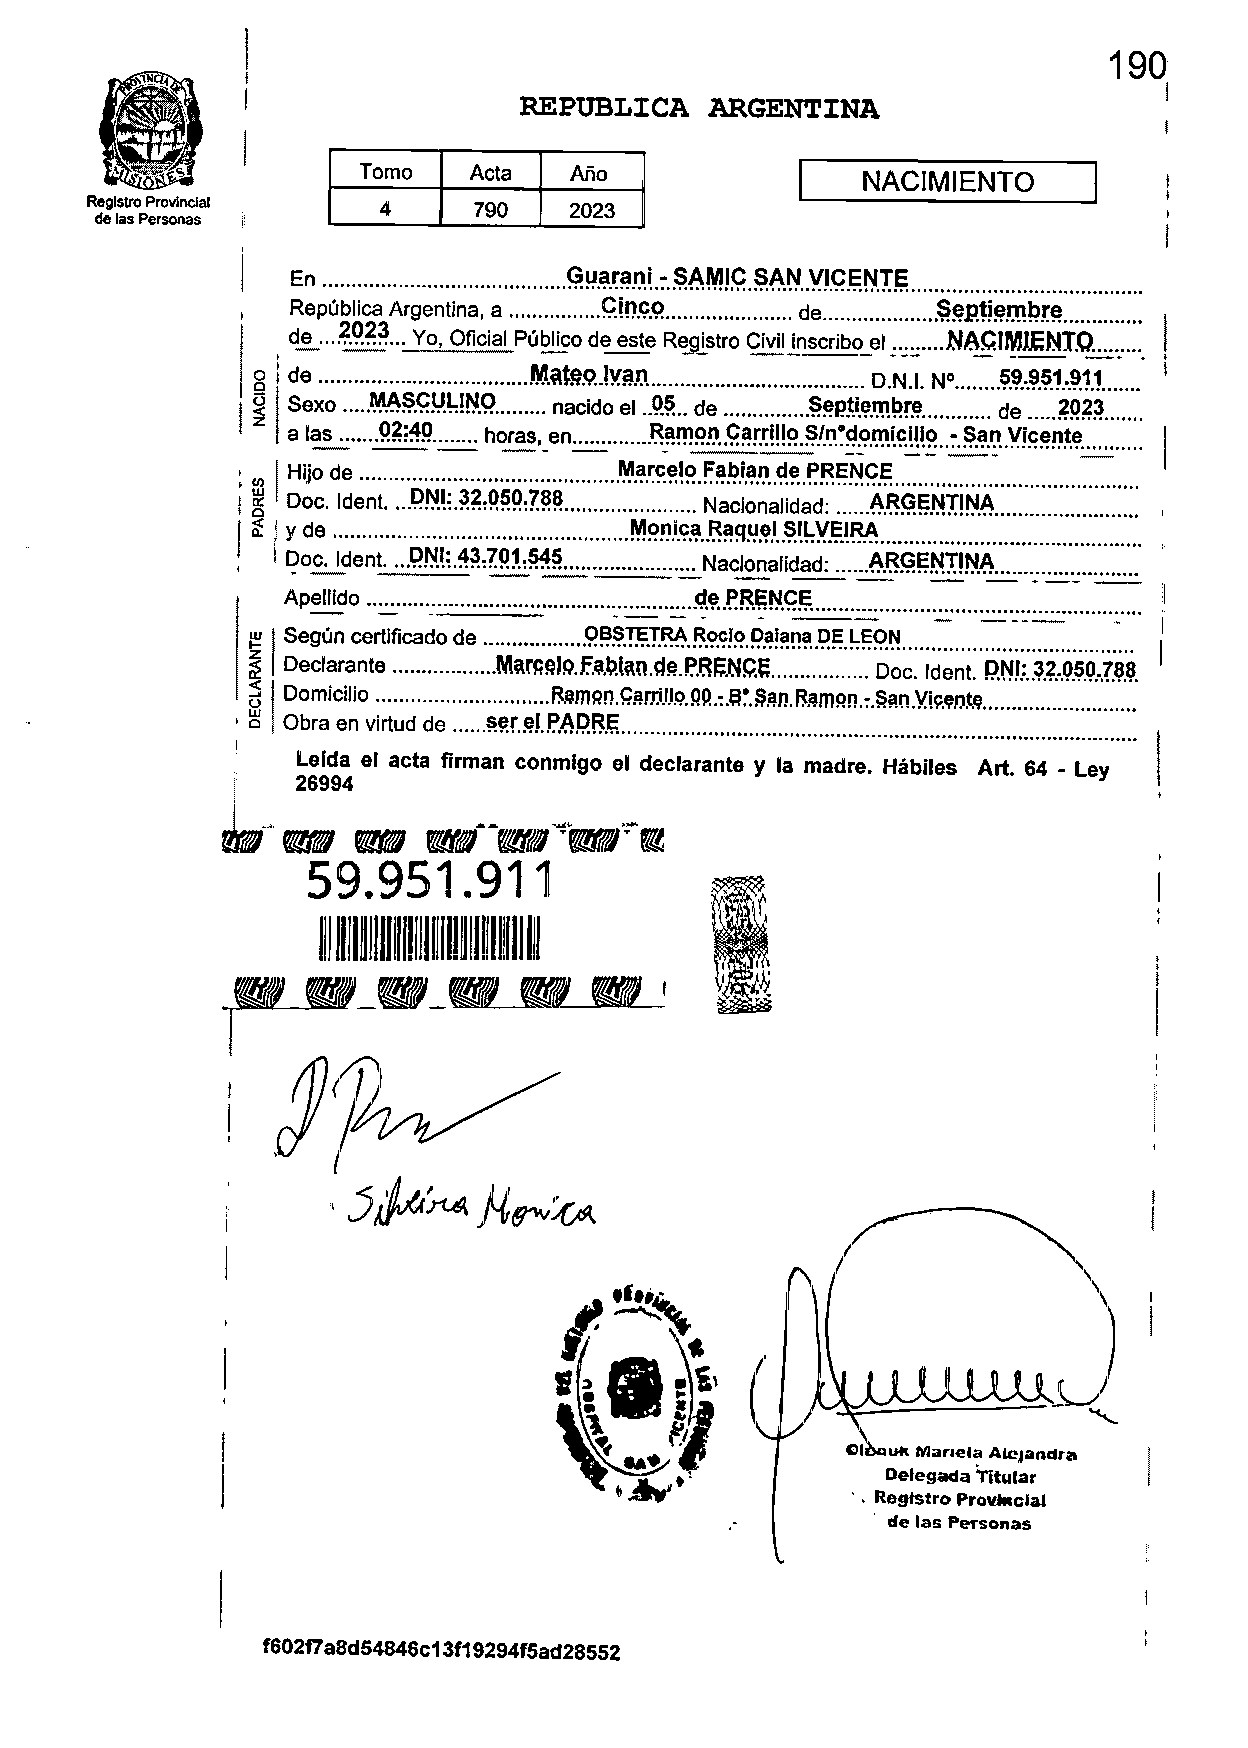 190
PROVINCIA DE
MISIONES
Registro Provincial
de las Personas
REPUBLICA ARGENTINA
Tomo Acta Año
4 790 2023
NACIMIENTO
En Guarani - SAMIC SAN VICENTE
República Argentina, a Cinco de Septiembre
de 2023 Yo, Oficial Público de este Registro Civil inscribo el NACIMIENTO
NACIDO
de Mateo Ivan D.N.I. Nº 59.951.911
Sexo MASCULINO nacido el 05 de Septiembre de 2023
a las 02:40 horas, en Ramon Carrillo S/n°domicilio - San Vicente
PADRES
Hijo de Marcelo Fabian de PRENCE
Doc. Ident. DNI: 32.050.788 Nacionalidad: ARGENTINA
y de Monica Raquel SILVEIRA
Doc. Ident. DNI: 43.701.545 Nacionalidad: ARGENTINA
Apellido de PRENCE
DECLARANTE
Según certificado de OBSTETRA Rocio Daiana DE LEON
Declarante Marcelo Fabian de PRENCE Doc. Ident. DNI: 32.050.788
Domicilio Ramon Carrillo 00 - B° San Ramon - San Vicente
Obra en virtud de ser el PADRE
Leída el acta firman conmigo el declarante y la madre. Hábiles Art. 64 - Ley
26994
59.951.911
Silveira Monica
HOSPITAL SAN VICENTE
Mariela Alejandra
Delegada Titular
Registro Provincial
de las Personas
f602f7a8d54846c13f19294f5ad28552